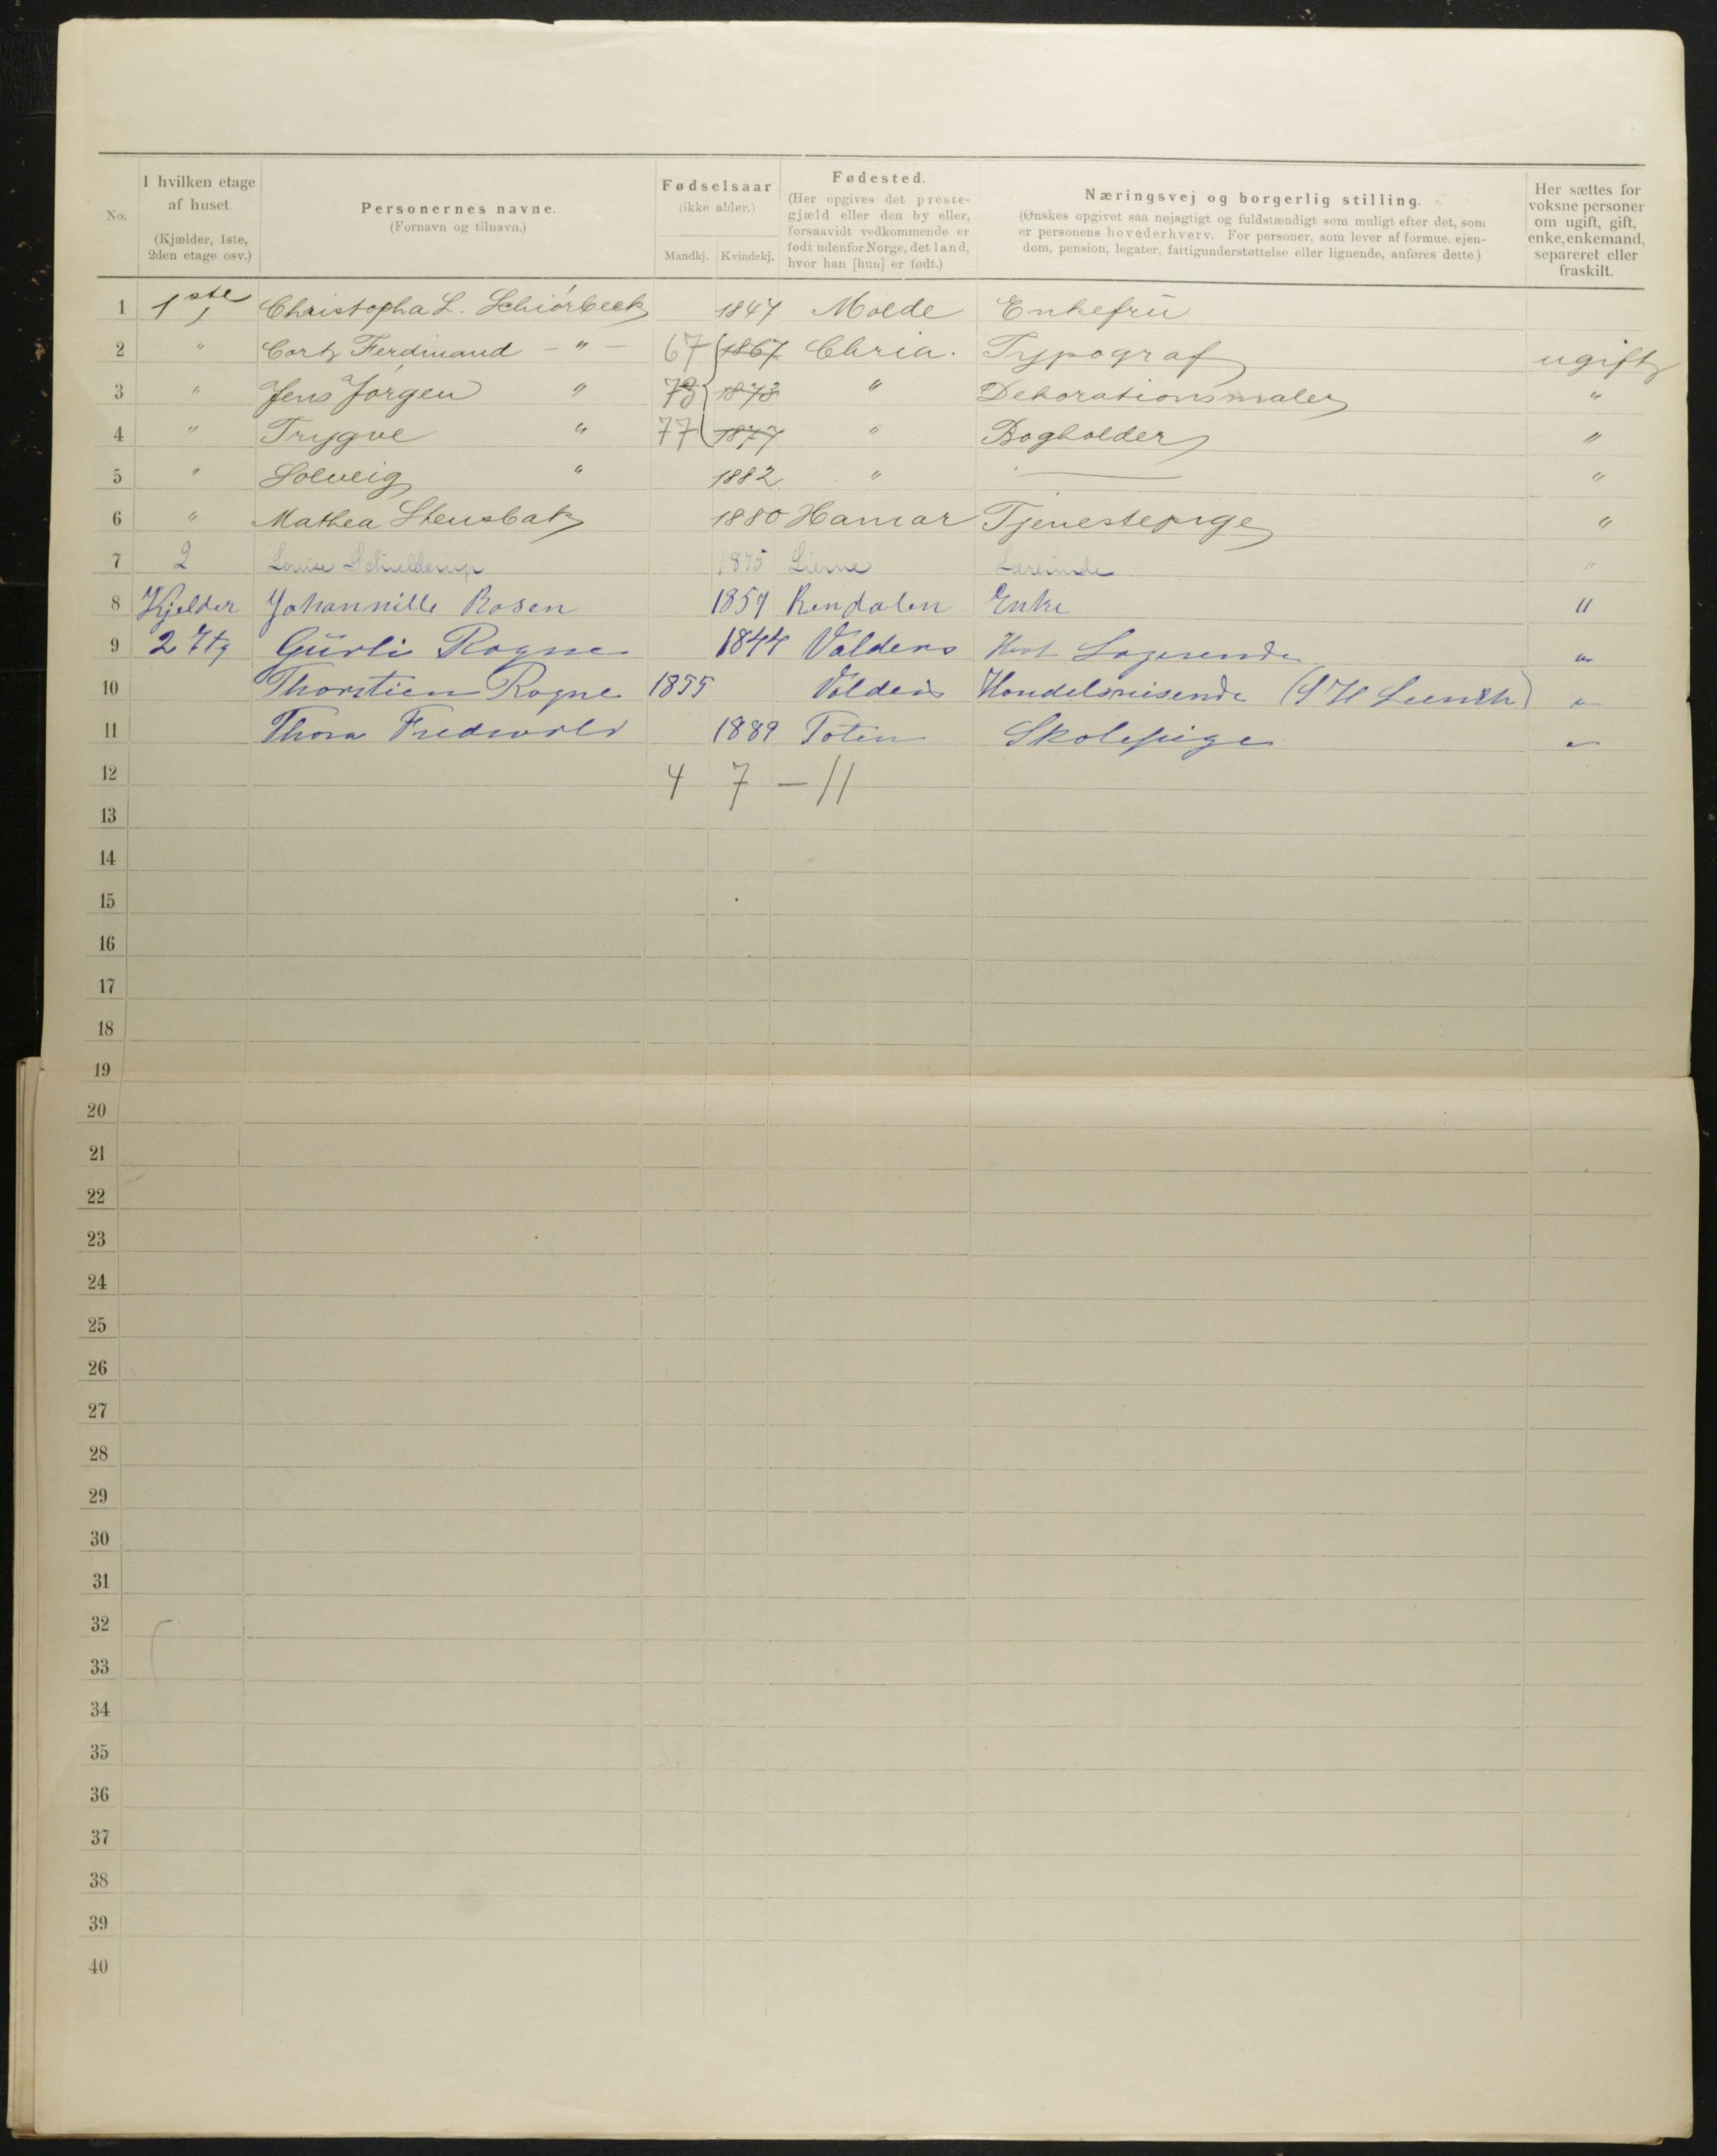 No.
I hvilken etage af huset.
(Kjælder, 1ste, 2den etage osv.)
Personernes navne.
(Fornavn og tilnavn.)
Fødselsaar
(ikke alder.)
Mandkj. Kvindekj.
Fødested.
(Her opgives det prestegjæld eller den by eller, forsaavidt vedkommende er født udenfor Norge, det land, hvor han [hun] er født.)
Næringsvej og borgerlig stilling.
(Ønskes opgivet saa nøjagtigt og fuldstændigt som muligt efter det, som
er personens hovederhverv. For personer, som lever af formue, ejen-
dom, pension, legater, fattigunderstøttelse eller lignende, anføres dette.)
Her sættes for voksne personer om ugift, gift, enke, enkemand, separeret eller fraskilt.
1 1ste Christopha L. Schiørbeck 1847 Molde Enkefrü
2 " Cortz Ferdinand - " - 67 1867 Chria. Typograf ugift
3 " Jens Jörgen " 73 1873 " Dekorationsmaler "
4 " Trygve " 77 1877 " Bogholder "
5 " Solveig " 1882 " — "
6 " Mathea Stensbak 1880 Hamar Tjenestepige "
7 2 Louise Schielderup 1875 Lierne Lærerinde "
8 Kjelder Johannille Rosen 1857 Rendalen Enke "
9 2 Etg Gürli Rogne 1844 Valders Logerende "
10 Thorstien Rogne 1855 Valders Handelsreisende "
11 Thora 1889 Toten Skolepige "
12 4 7 — 11
13
14
15
16
17
18
19
20
21
22
23
24
25
26
27
28
29
30
31
32
33
34
35
36
37
38
39
40